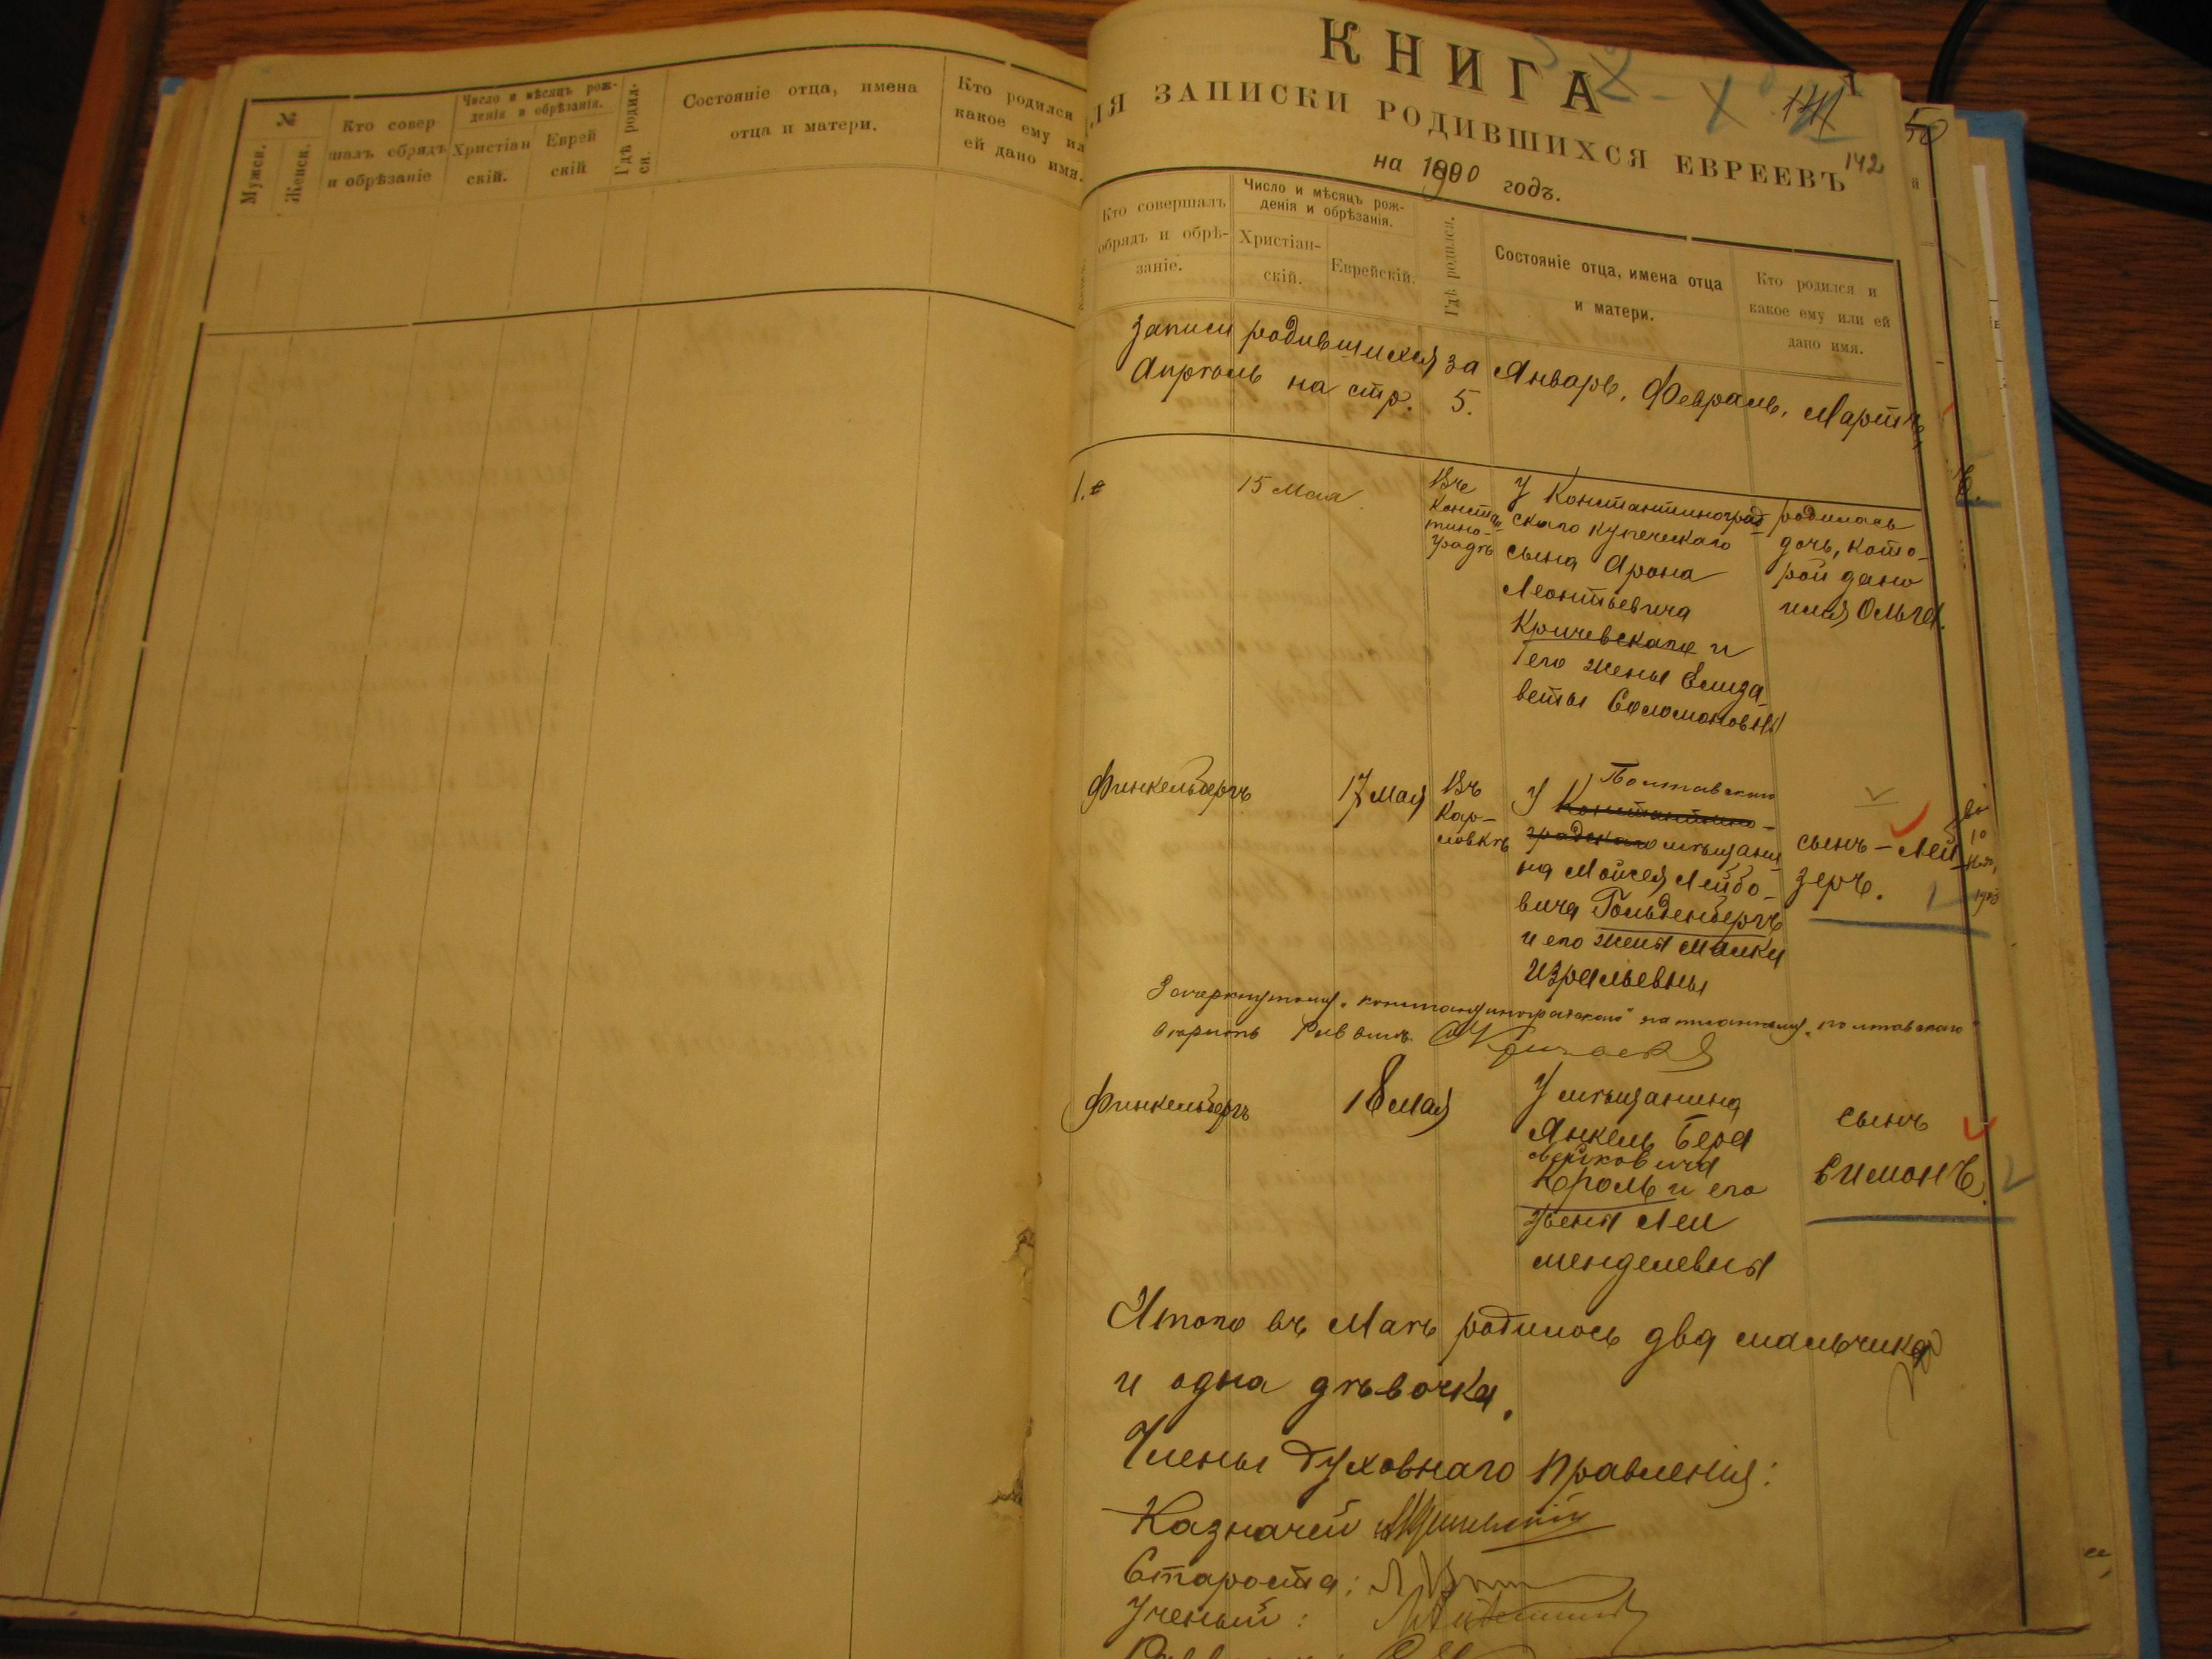 №
Мужск.
Женск.
Кто совер
шалъ обрядъ
и обрѣзаніе
Число и мѣсяцъ рож-
денія и обрѣзанія.
Христіан
скій.
Еврей
скій
Гдѣ родил-
ся.
Состояніе отца, имена
отца и матери.
Кто родился
какое ему ил
ей дано имя.
КНИГА
ЛЯ ЗАПИСКИ РОДИВШИХСЯ ЕВРЕЕВЪ
142
на 1890 годъ.
Кто совершалъ
обрядъ и обрѣ-
заніе.
Число и мѣсяцъ рож-
денія и обрѣзанія.
Христіан-
скій.
Еврейскій.
Гдѣ родился.
Состояніе отца, имена отца
и матери.
Кто родился и
какое ему или ей
дано имя.
Записи родившихся за Январь, Февраль, Мартъ,
Апрѣль на стр. 5.
1.
15 Мая
Въ
Констан
тино-
градѣ
У Константиноград
скаго купеческаго
сына Арона
Леонтьевича
Кричевскаго и
его жены Елиза
веты Соломоновны
родилась
дочь, кото-
рой дано
имя Ольга.
Финкельбергъ
17 Мая
Въ
Кар-
ловкѣ
Полтавскаго
У Константино-
градскаго мѣщани
на Мойсея Лейбо-
вича Гольденбергъ
и его жены Малки
Израильевны
сынъ - Лей
зеръ.
Зачеркнутому „константиноградскаго" написанному „полтавскаго"
вѣрить Раввинъ
Финкельбергъ
18 Мая
У мѣщанина
Янкель Бера
Лейковича
Кроль и его
жены Леи
Менделевны
сынъ
Симонъ.
Итого въ Маѣ родилось два мальчика
и одна дѣвочка.
Члены Духовнаго Правленія:
Казначей
Староста:
Ученый: